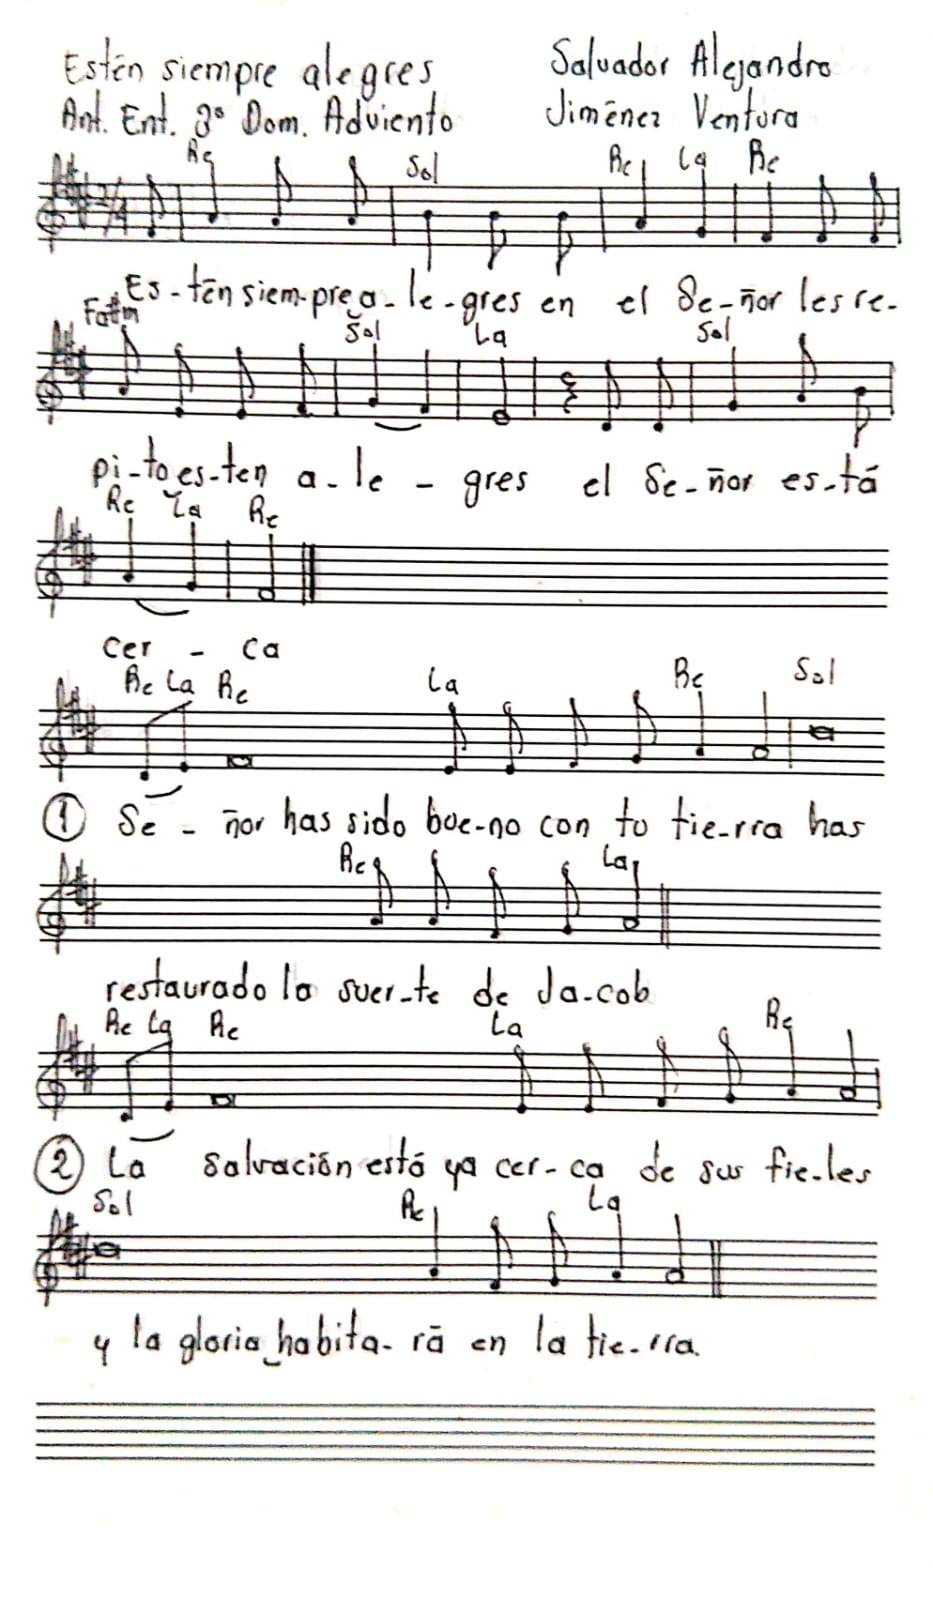 Estén siempre alegres
Salvador Alejandro
Ant. Ent. 3º Dom. Adviento
Jiménez Ventura
Re Sol Re La Re
2/4
Es-tén siem-pre a-le-gres en el Se-ñor les re-
Fa#m Sol La Sol
pi-to es-ten a-le-gres el Se-ñor es-tá
Re La Re
cer - ca
Re La Re La Re Sol
① Se - ñor has sido bue-no con tu tie-rra has
Re La
restaurado la suer-te de Ja-cob
Re La Re La Re
② La salvación está ya cer-ca de sus fie-les
Sol Re La
y la gloria habita-rá en la tie-rra.